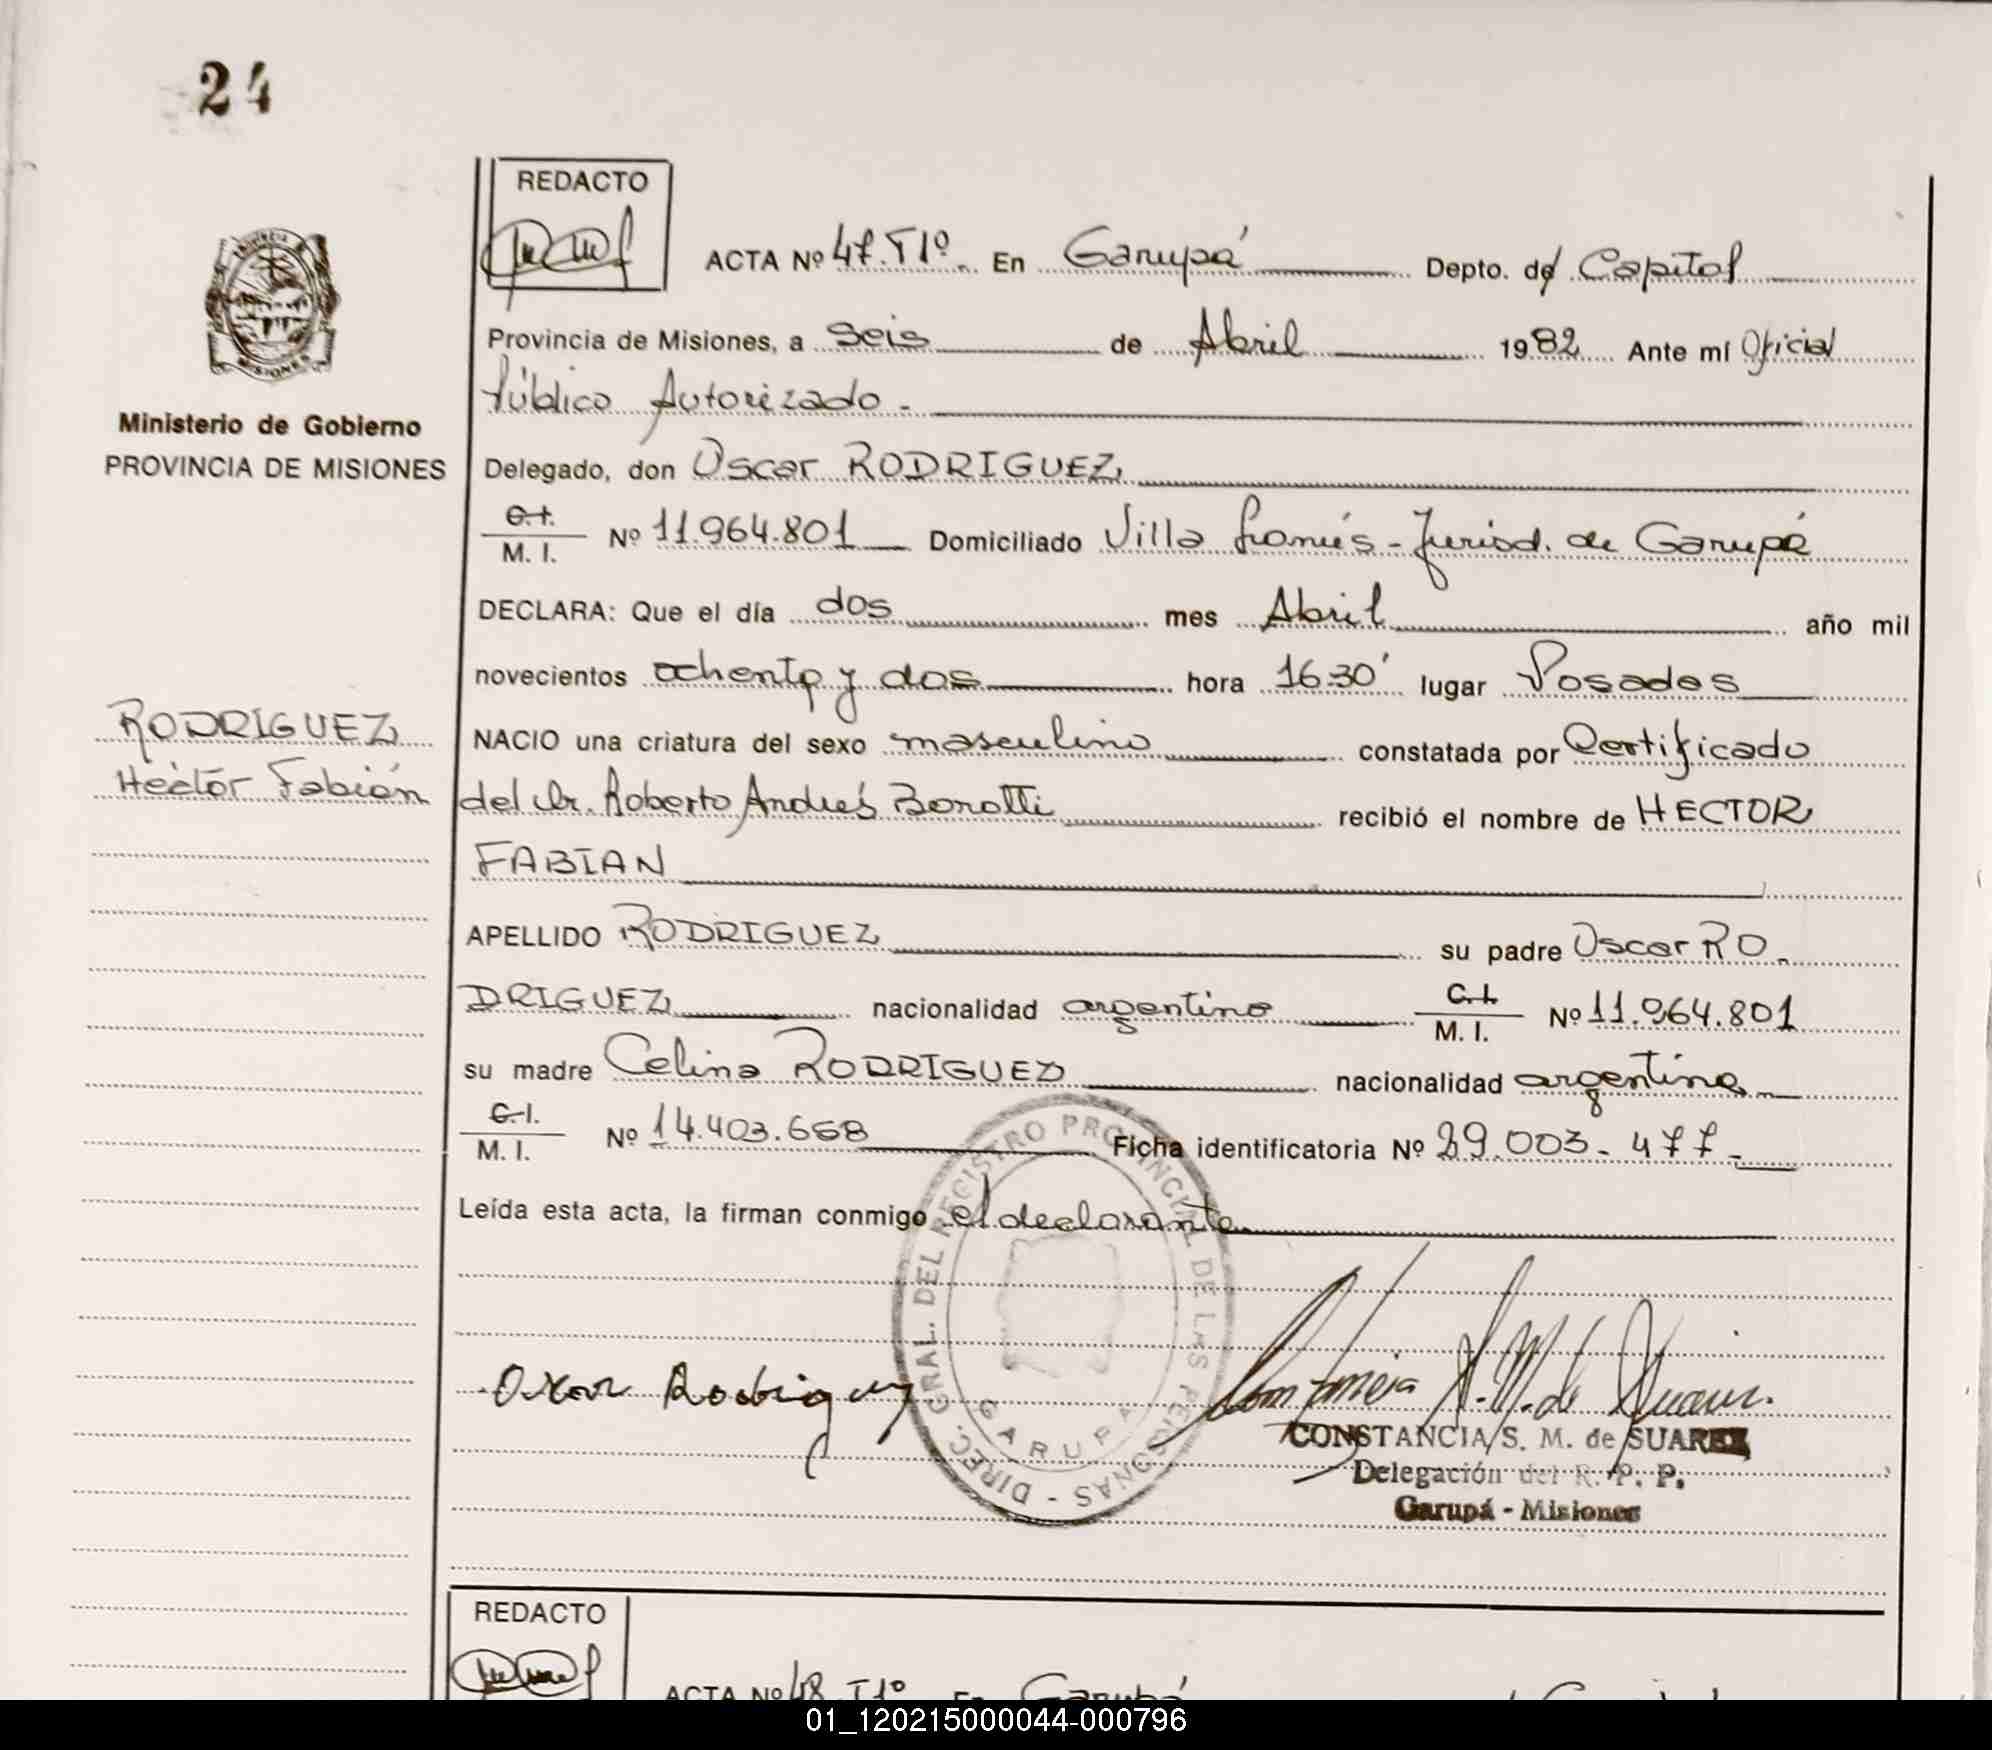 24
REDACTO
ACTA Nº 47.T1º. En Garupá Depto. de Capital
Provincia de Misiones, a seis de Abril 1982 Ante mí Oficial
Público Autorizado.
Ministerio de Gobierno
PROVINCIA DE MISIONES
Delegado, don Oscar RODRIGUEZ
C.I.
M. I. Nº 11.964.801 Domiciliado Villa Lanús - Jurisd. de Garupá
DECLARA: Que el día dos mes Abril año mil
novecientos ochenta y dos hora 16.30' lugar Posadas
RODRIGUEZ
Héctor Fabián
NACIO una criatura del sexo masculino constatada por Certificado
del Dr. Roberto Andrés Bonotti recibió el nombre de HECTOR
FABIAN
APELLIDO RODRIGUEZ su padre Oscar RO
DRIGUEZ nacionalidad argentino C.I.
M. I. Nº 11.964.801
su madre Celina RODRIGUEZ nacionalidad argentina
C.I.
M. I. Nº 14.403.658 Ficha identificatoria Nº 29.003-477-
Leída esta acta, la firman conmigo el declarante
DIREC. GRAL. DEL REGISTRO PROVINCIAL DE LAS PERSONAS -
GARUPA
Oscar Rodriguez
Constancia S. M. de Suarez.
CONSTANCIA S. M. de SUAREZ
Delegación del R. P. P.
Garupá - Misiones
REDACTO
ACTA Nº 48. T1º En Garupá
01_120215000044-000796